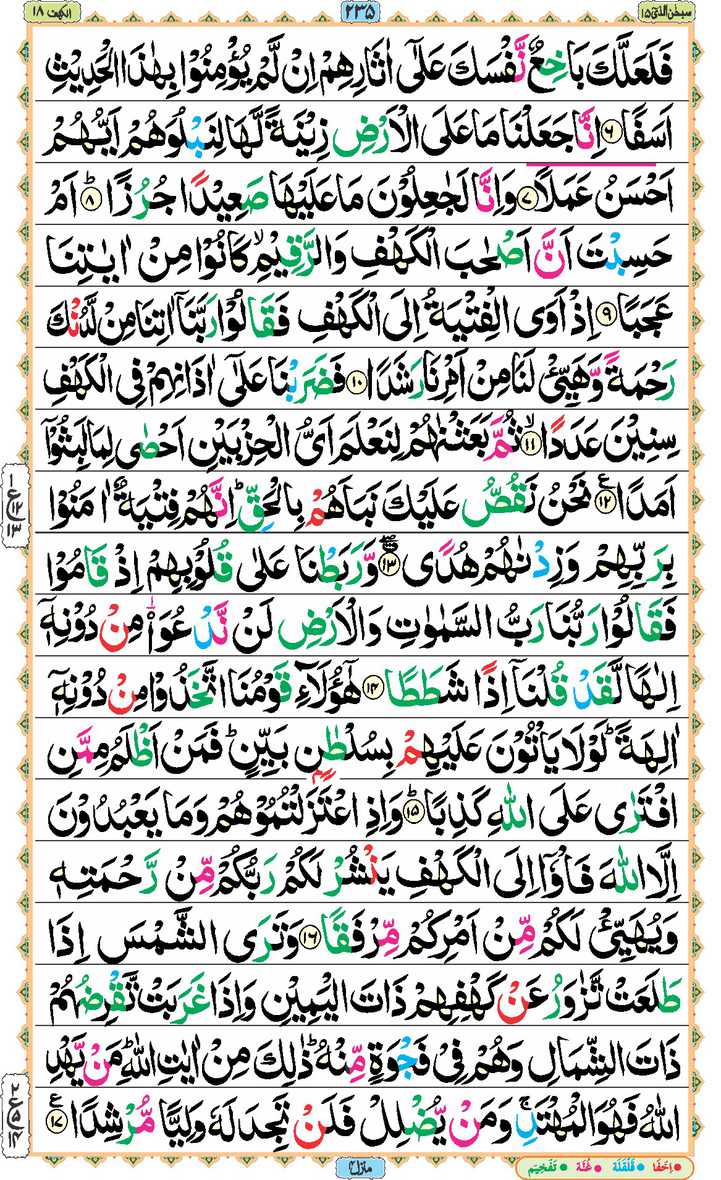 سبحٰن الذی ۱۵
۲۳۵
الکهف ۱۸
فَلَعَلَّكَ بَاخِعٌ نَّفْسَكَ عَلٰٓى اٰثَارِهِمْ اِنْ لَّمْ يُؤْمِنُوْا بِهٰذَا الْحَدِيْثِ
اَسَفًا ۶ اِنَّا جَعَلْنَا مَا عَلَى الْاَرْضِ زِيْنَةً لَّهَا لِنَبْلُوَهُمْ اَيُّهُمْ
اَحْسَنُ عَمَلًا ۷ وَاِنَّا لَجٰعِلُوْنَ مَا عَلَيْهَا صَعِيْدًا جُرُزًا ؕ ۸ اَمْ
حَسِبْتَ اَنَّ اَصْحٰبَ الْكَهْفِ وَالرَّقِيْمِ ۙ كَانُوْا مِنْ اٰيٰتِنَا
عَجَبًا ۹ اِذْ اَوَى الْفِتْيَةُ اِلَى الْكَهْفِ فَقَالُوْا رَبَّنَاۤ اٰتِنَا مِنْ لَّدُنْكَ
رَحْمَةً وَّهَيِّئْ لَنَا مِنْ اَمْرِنَا رَشَدًا ۱۰ فَضَرَبْنَا عَلٰٓى اٰذَانِهِمْ فِى الْكَهْفِ
سِنِيْنَ عَدَدًا ۙ ۱۱ ثُمَّ بَعَثْنٰهُمْ لِنَعْلَمَ اَىُّ الْحِزْبَيْنِ اَحْصٰى لِمَا لَبِثُوْۤا
اَمَدًا ۱۲ ع نَحْنُ نَقُصُّ عَلَيْكَ نَبَاَهُمْ بِالْحَقِّ ؕ اِنَّهُمْ فِتْيَةٌ اٰمَنُوْا
بِرَبِّهِمْ وَزِدْنٰهُمْ هُدًى ۱۳ وَّرَبَطْنَا عَلٰى قُلُوْبِهِمْ اِذْ قَامُوْا
فَقَالُوْا رَبُّنَا رَبُّ السَّمٰوٰتِ وَالْاَرْضِ لَنْ نَّدْعُوَا۟ مِنْ دُوْنِهٖۤ
اِلٰهًا لَّقَدْ قُلْنَاۤ اِذًا شَطَطًا ۱۴ هٰٓؤُلَاۤءِ قَوْمُنَا اتَّخَذُوْا مِنْ دُوْنِهٖۤ
اٰلِهَةً ؕ لَوْلَا يَاْتُوْنَ عَلَيْهِمْ بِسُلْطٰنٍۢ بَيِّنٍ ؕ فَمَنْ اَظْلَمُ مِمَّنِ
افْتَرٰى عَلَى اللّٰهِ كَذِبًا ؕ ۱۵ وَاِذِ اعْتَزَلْتُمُوْهُمْ وَمَا يَعْبُدُوْنَ
اِلَّا اللّٰهَ فَاْوٗۤا اِلَى الْكَهْفِ يَنْشُرْ لَكُمْ رَبُّكُمْ مِّنْ رَّحْمَتِهٖ
وَيُهَيِّئْ لَكُمْ مِّنْ اَمْرِكُمْ مِّرْفَقًا ۱۶ وَتَرَى الشَّمْسَ اِذَا
طَلَعَتْ تَّزٰوَرُ عَنْ كَهْفِهِمْ ذَاتَ الْيَمِيْنِ وَاِذَا غَرَبَتْ تَّقْرِضُهُمْ
ذَاتَ الشِّمَالِ وَهُمْ فِىْ فَجْوَةٍ مِّنْهُ ؕ ذٰلِكَ مِنْ اٰيٰتِ اللّٰهِ ؕ مَنْ يَّهْدِ
اللّٰهُ فَهُوَ الْمُهْتَدِ ۚ وَمَنْ يُّضْلِلْ فَلَنْ تَجِدَ لَهٗ وَلِيًّا مُّرْشِدًا ۱۷ ع
منزل ۴
اِخفَا قَلقَلَة غُنَّة تَفْخِیْم